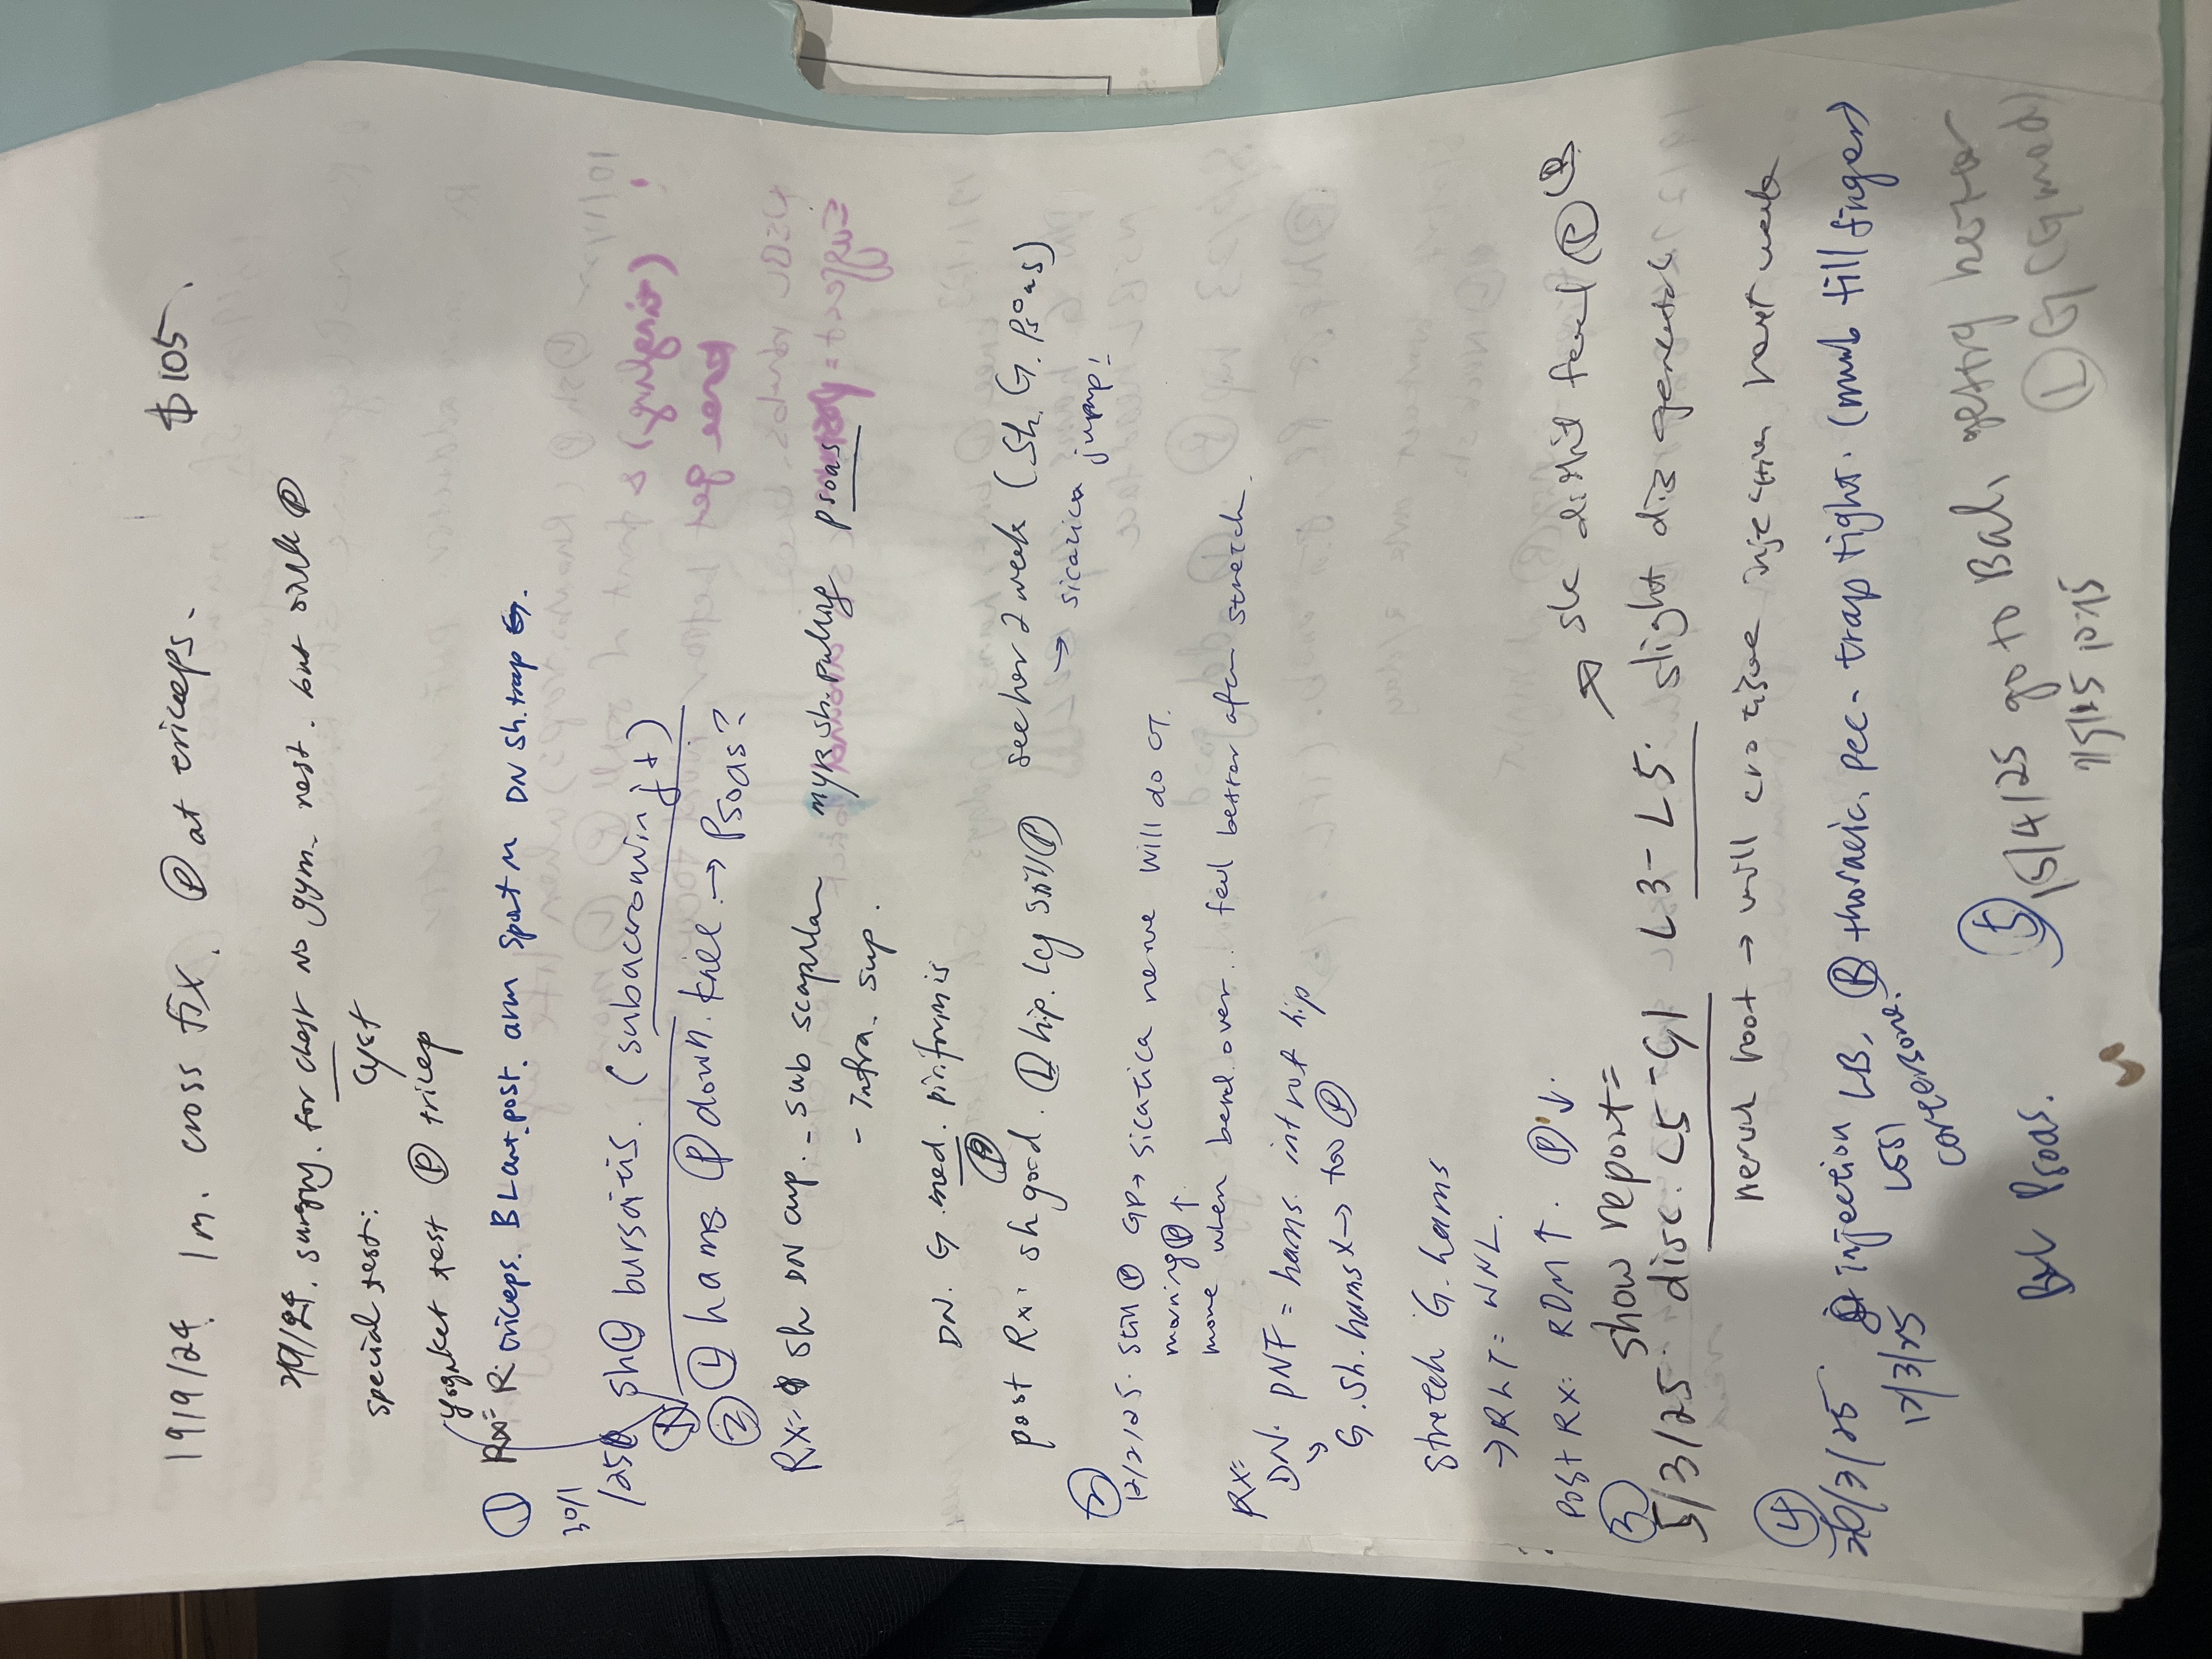 $105
19/9/24. 1m. cross fix. Ⓟ at triceps.
surgery. for chest no gym. rest. but still Ⓟ
cyst
special test:
test Ⓟ tricep
① Rx= R. triceps. B Lant.post. arm spot m DN sh.trap
30/1
/25 sh Ⓛ bursitis. (subacromion jt)
② Ⓛ hams Ⓟ down. → Psoas?
Rx= sh DN cup. - sub scapular sh. pulling psoas
- Infra. sup.
DN. G. med. piriformis
post Rx: sh good. Ⓛ hip. leg still Ⓟ see her 2 week (Sh. G. Psoas)
② 12/2/25. still Ⓟ GP→ sicatica nerve will do CT. → sicatica jump!
morning Ⓟ ↑
more when bend over. feel better after stretch.
Rx=
DN. PNF = hams. int rot hip
G. sh. hams x → too Ⓟ
stretch G. hams
→ RLT = WNL.
Post Rx: ROM ↑. Ⓟ ↓.
③ show report= → she didnt feel Ⓟ
5/3/25. disc. L5-S1 L3-L5. slight dis generate
nerve root → will injection next week
④
20/3/25 injection LB, Ⓑ thoracic, pec- trap tight. (numb till finger)
17/3/25 L5S1
cortersone.
Psoas. ⑤ 15/4/25 go to Bali, getting better
Ⓛ G (G med)